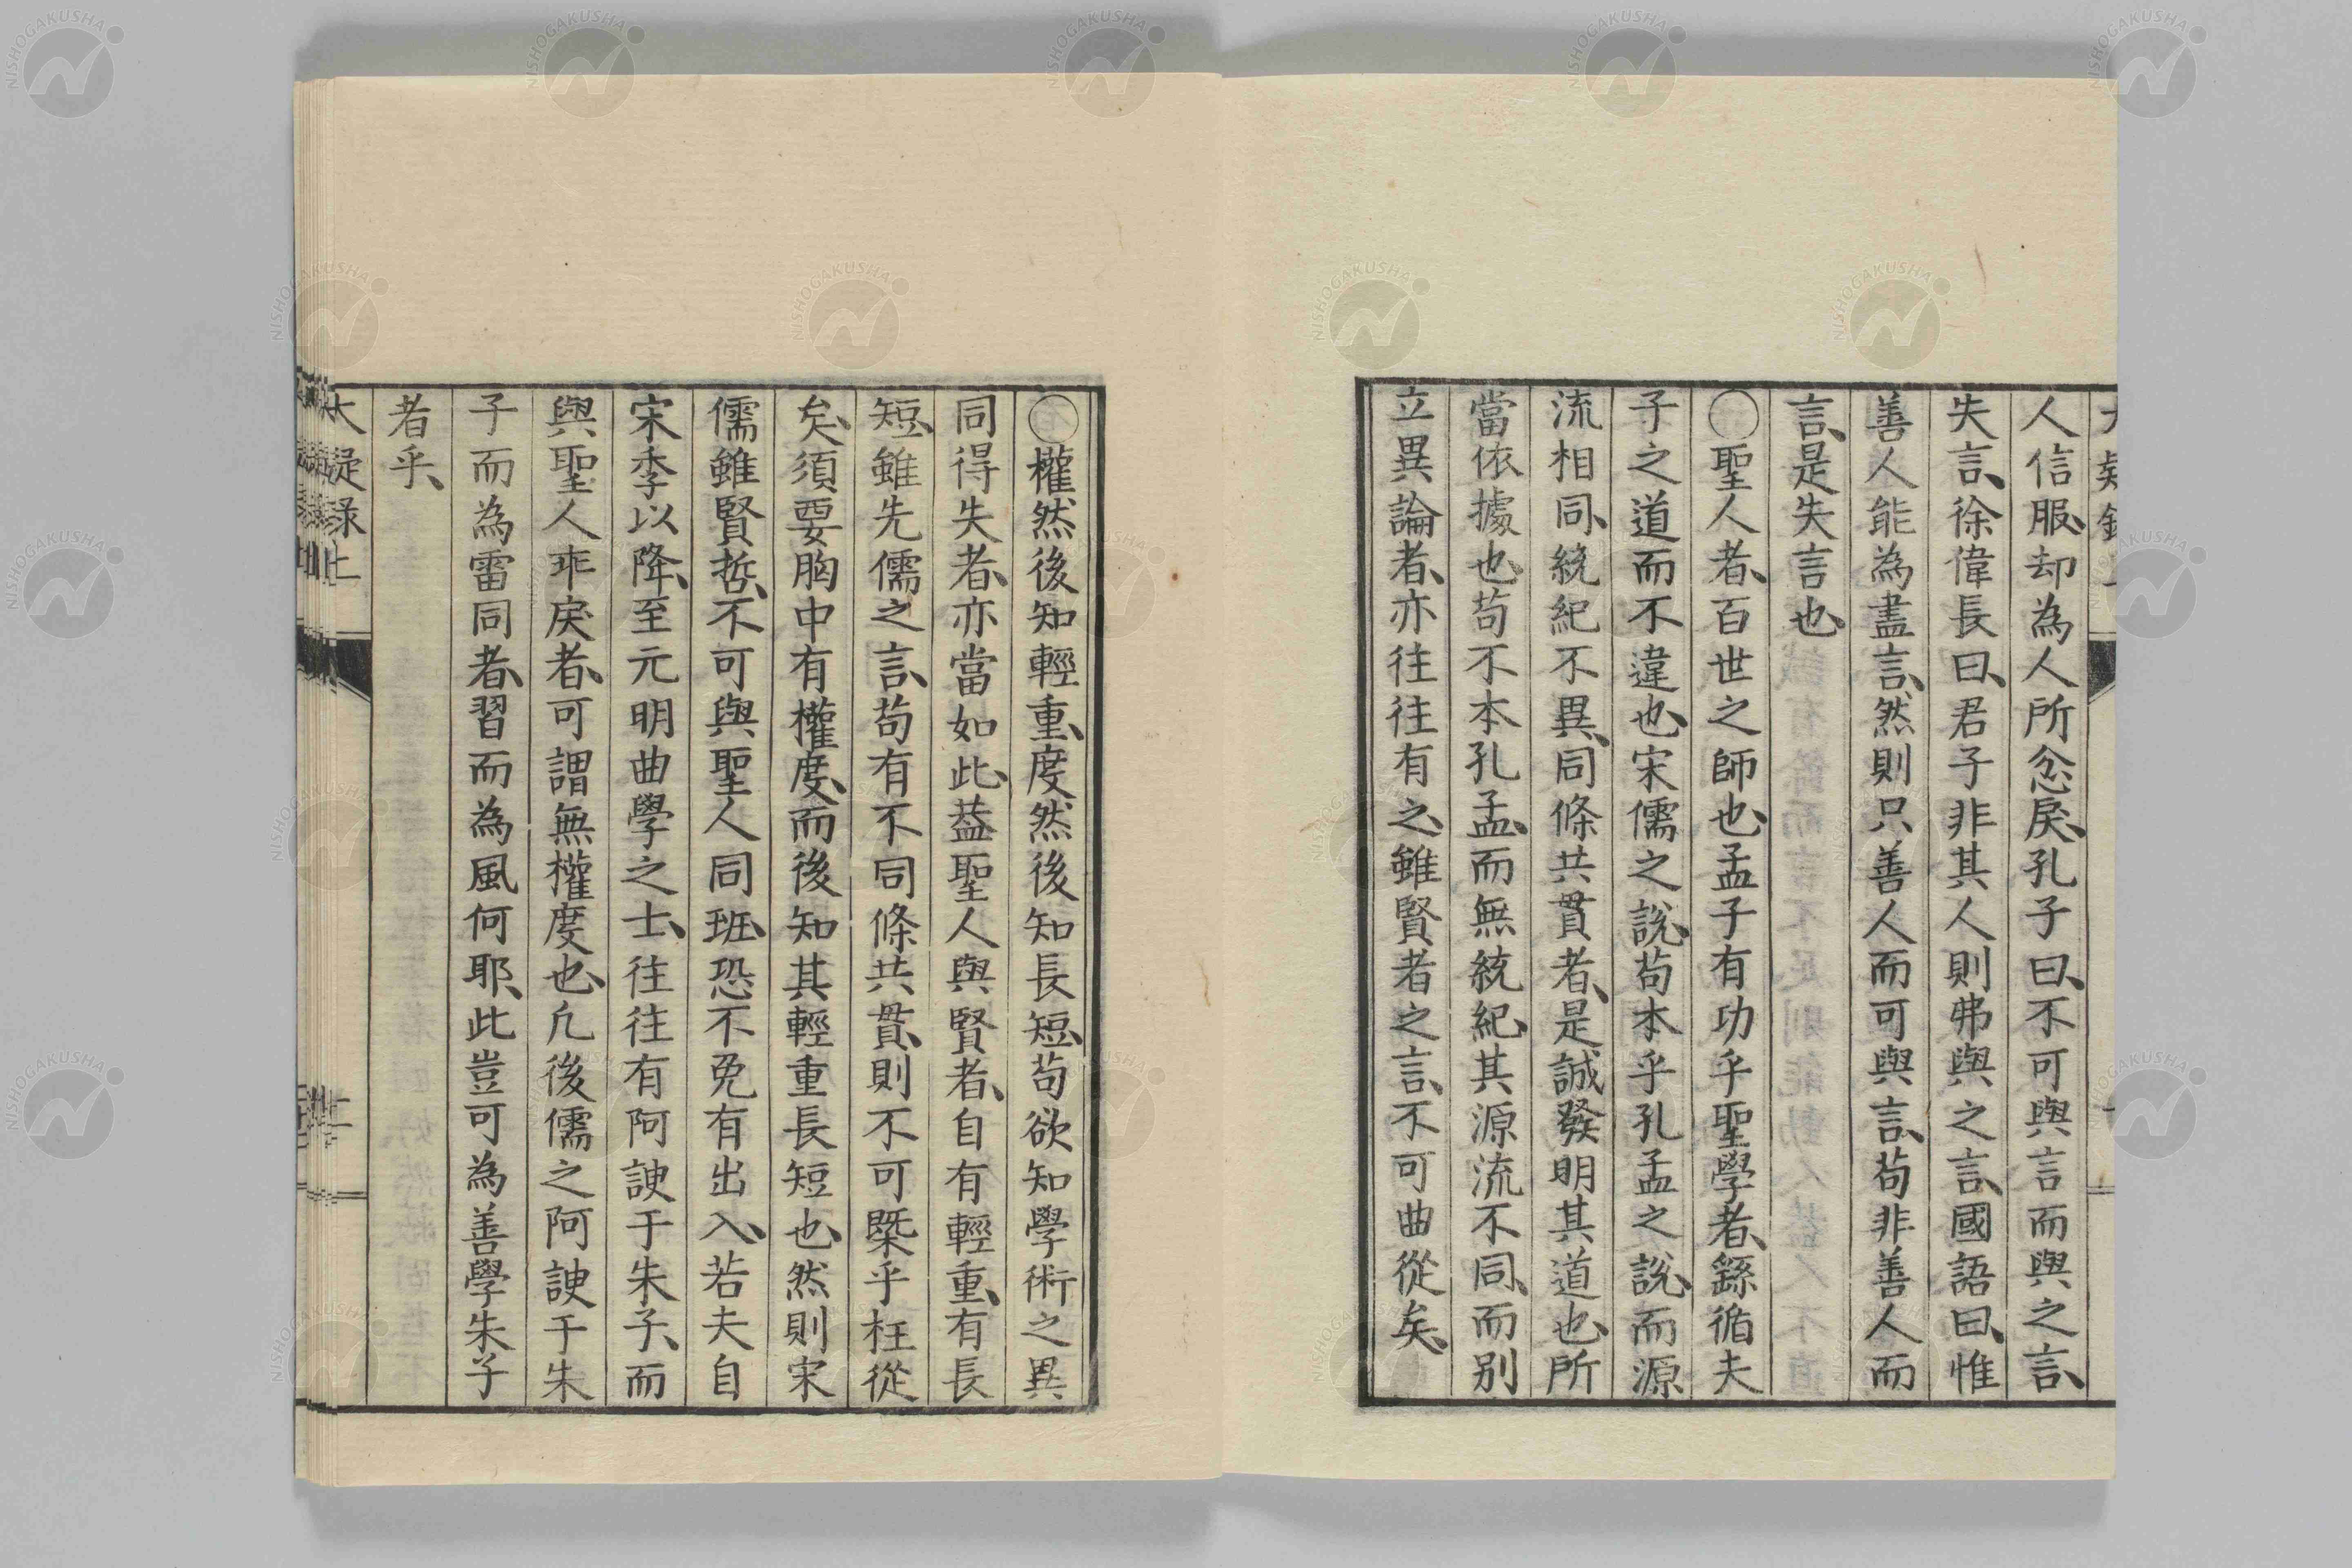 人信服、却為人所忿戾、孔子曰、不可與言而與之言、
失言、徐偉長曰、君子非其人則弗與之言、國語曰、惟
善人能為盡言、然則只善人而可與言、苟非善人而
言、是失言也、
○聖人者、百世之師也、孟子有功乎聖學者、繇循夫
子之道而不違也、宋儒之說、苟本乎孔孟之說、而源
流相同、統紀不異、同條共貫者、是誠發明其道也、所
當依據也、苟不本孔孟、而無統紀、其源流不同、而別
立異論者、亦往往有之、雖賢者之言、不可曲從矣、
○權然後知輕重、度然後知長短、苟欲知學術之異
同得失者、亦當如此、蓋聖人與賢者、自有輕重、有長
短、雖先儒之言、苟有不同條共貫、則不可槩乎枉從
矣、須要胸中有權度、而後知其輕重長短也、然則宋
儒雖賢哲、不可與聖人同班、恐不免有出入、若夫自
宋季以降、至元明曲學之士、往往有阿諛于朱子、而
與聖人乖戾者、可謂無權度也、凢後儒之阿諛于朱
子而為雷同者、習而為風何耶、此豈可為善學朱子
者乎、
大疑録上
NISHOGAKUSHA